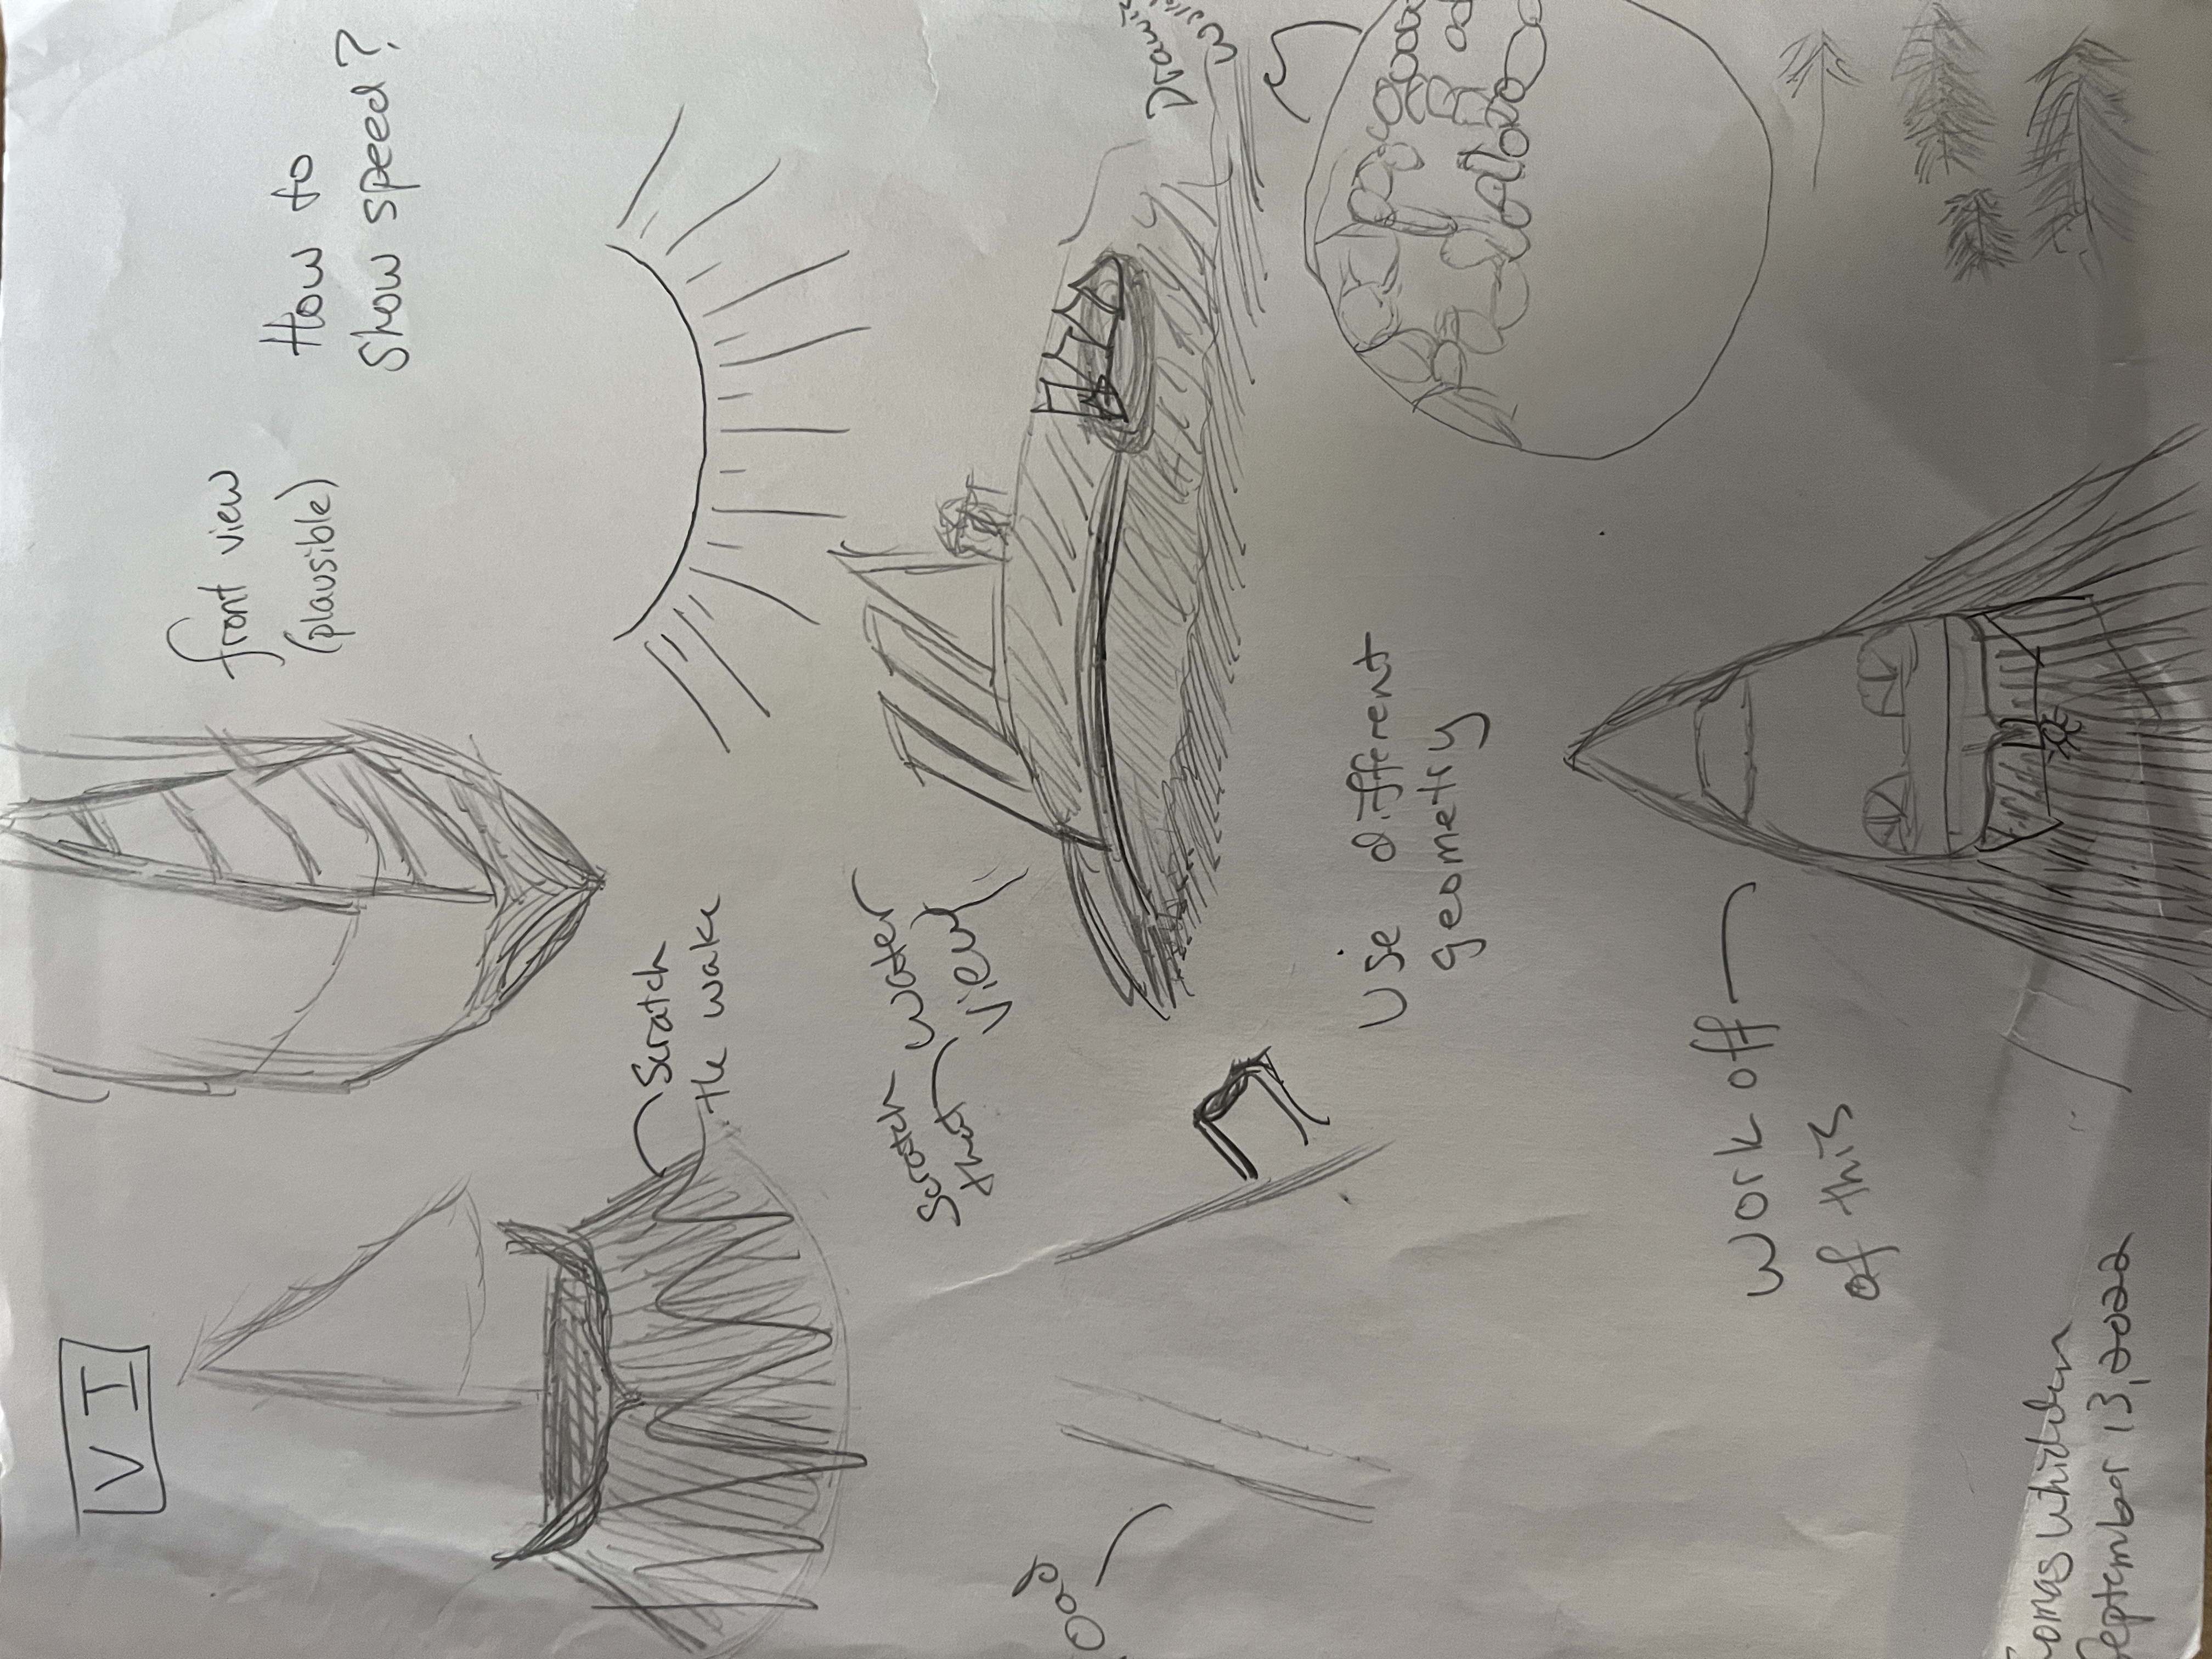 VI
front view
(plausible)
How to
show speed?
Scratch
the wake
Scratch
that water
view
oad
Use different
geometry
Work off
of this
omas Whidden
eptember 13, 2022